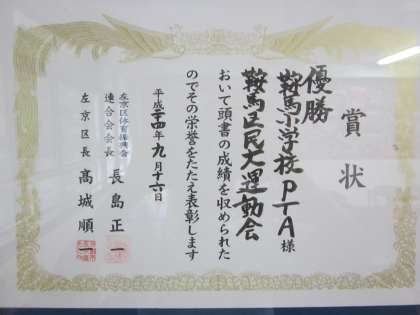 賞状
優勝
鞍馬小学校PTA様
鞍馬区民大運動会
おいて頭書の成績を収められた
のでその栄誉をたたえ表彰します
平成二十四年九月十六日
左京区体育振興会
連合会会長 長島正一
左京区長 髙城順一